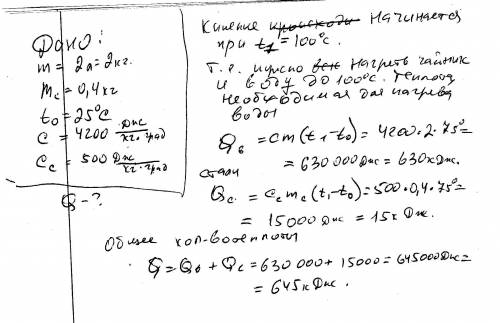 Дано:
m = 2л = 2кг.
mс = 0,4кг
t₀ = 25°C
c = 4200 Дж/кг·град
cс = 500 Дж/кг·град
Q - ?
Кипение начинается
при t₁ = 100°C.
Т.е. нужно нагреть чайник
и воду до 100°C. Теплота
необходимая для нагрева
воды
Qв = cm(t₁-t₀) = 4200·2·75°=
= 630 000 Дж = 630 кДж.
стали
Qс = cс mс (t₁-t₀) = 500·0,4·75°=
= 15000 Дж = 15 кДж.
Общее кол-во теплоты
Q = Qв + Qс = 630 000 + 15000 = 645000 Дж =
= 645 кДж.